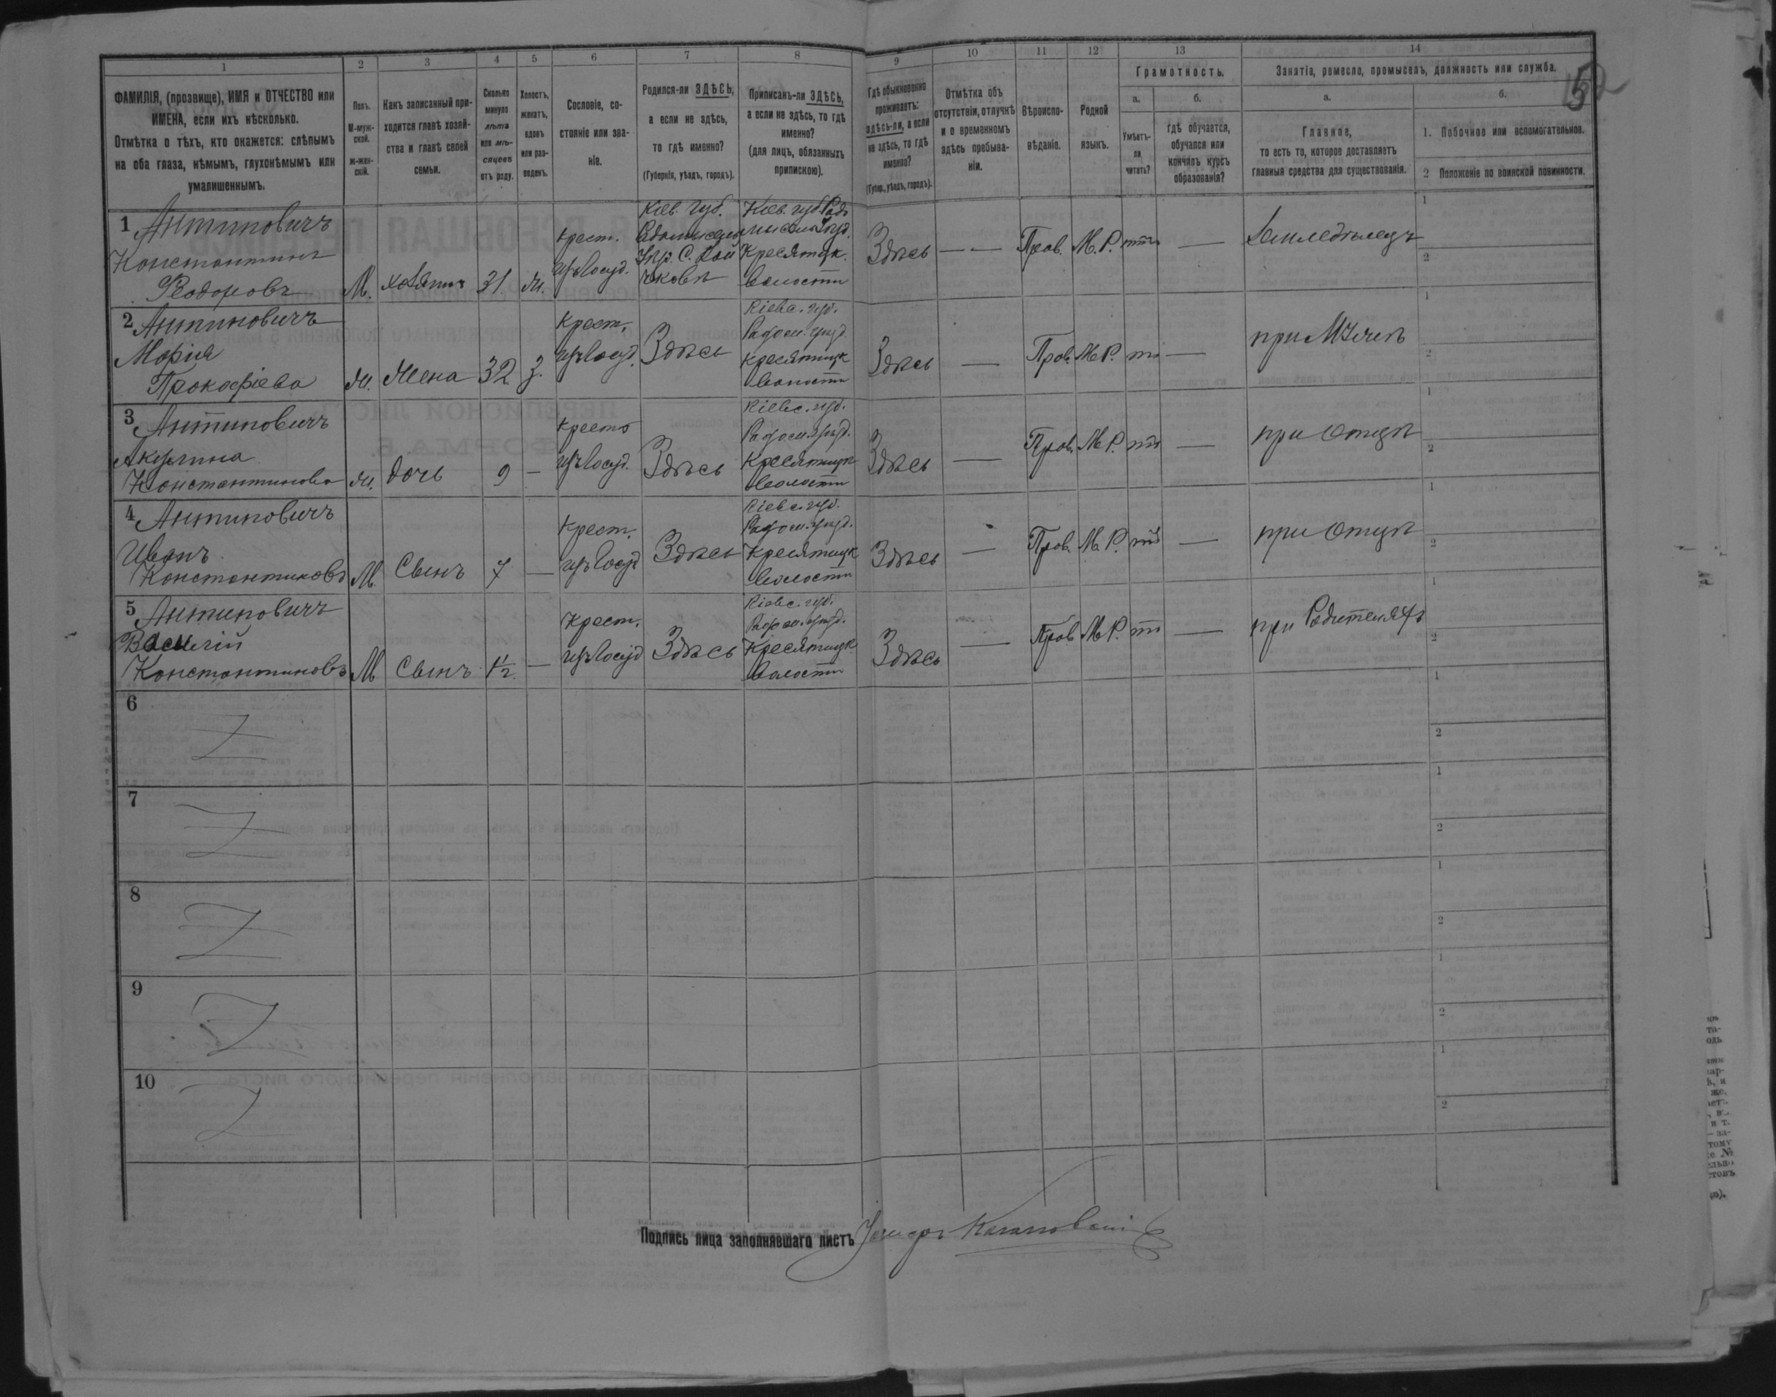 1
2
3
4
5
6
7
8
9
10
11
12
13
14
ФАМИЛІЯ, (прозвище), ИМЯ и ОТЧЕСТВО или
ИМЕНА, если ихъ нѣсколько.
Отмѣтка о тѣхъ, кто окажется: слѣпымъ
на оба глаза, нѣмымъ, глухонѣмымъ или
умалишеннымъ.
Полъ.
М-муж-
ской.
ж-жен-
скій.
Какъ записанный при-
ходится главѣ хозяй-
ства и главѣ своей
семьи.
Сколько
минуло
лѣтъ
или мѣ-
сяцевъ
отъ роду.
Холостъ,
женатъ,
вдовъ
или раз-
веденъ.
Сословіе, со-
стояніе или зва-
ніе.
Родился-ли ЗДѢСЬ,
а если не здѣсь,
то гдѣ именно?
(Губернія, уѣздъ, городъ).
Приписанъ-ли ЗДѢСЬ,
а если не здѣсь, то гдѣ
именно?
(для лицъ, обязанныхъ
припискою).
Гдѣ обыкновенно
проживаетъ:
здѣсь-ли, а если
не здѣсь, то гдѣ
именно?
(Губер., уѣздъ, городъ).
Отмѣтка объ
отсутствіи, отлучкѣ
и о временномъ
здѣсь пребыва-
ніи.
Вѣроиспо-
вѣданіе.
Родной
языкъ.
Грамотность.
а.
б.
Умѣетъ-
ли
читать?
гдѣ обучается,
обучался или
кончилъ курсъ
образованія?
Занятіе, ремесло, промыселъ, должность или служба.
а.
б.
Главное,
то есть то, которое доставляетъ
главныя средства для существованія.
1. Побочное или вспомогательное.
2 Положеніе по воинской повинности.
52
1 Антиповичъ
Константинъ
Феодоровъ
М.
хозяинъ
31
ж.
крест.
изъ госуд.
Кіев. губ.
Кіев. губ. Радо
Кресятицк.
волости
Здѣсь
— —
Прав.
М. Р.
—
Земледѣлецъ
1
2
2 Антиповичъ
Марія
Прокофіева
ж.
Жена
32
з.
крест.
изъ госуд.
Здѣсь
Кіевс. губ.
Радом. уѣзд.
Кресятицк
волости
Здѣсь
—
Прав.
М. Р.
—
при Мужѣ
1
2
3 Антиповичъ
Акулина
Константинова
ж.
дочь
9
—
изъ госуд.
Здѣсь
Кіевс. губ.
Радом. уѣзд.
Кресятицк
волости
Здѣсь
—
Прав.
М. Р.
—
при Отцѣ
1
2
4 Антиповичъ
Иванъ
Константиновъ
М
Сынъ
7
—
Крест.
изъ госуд
Здѣсь
Кіевс. губ.
Радом. уѣзд.
Кресятицк
волости
Здѣсь
—
Прав.
М. Р.
—
при Отцѣ
1
2
5 Антиповичъ
Василій
Константиновъ
М
Сынъ
1½
—
Крест.
изъ госуд
Здѣсь
Кіевс. губ.
Радом. уѣзд.
Кресятицк
волости
Здѣсь
—
Прав
М. Р.
—
при Родителяхъ
1
2
6
1
2
7
1
2
8
1
2
9
1
2
10
1
2
Подпись лица заполнявшаго листъ